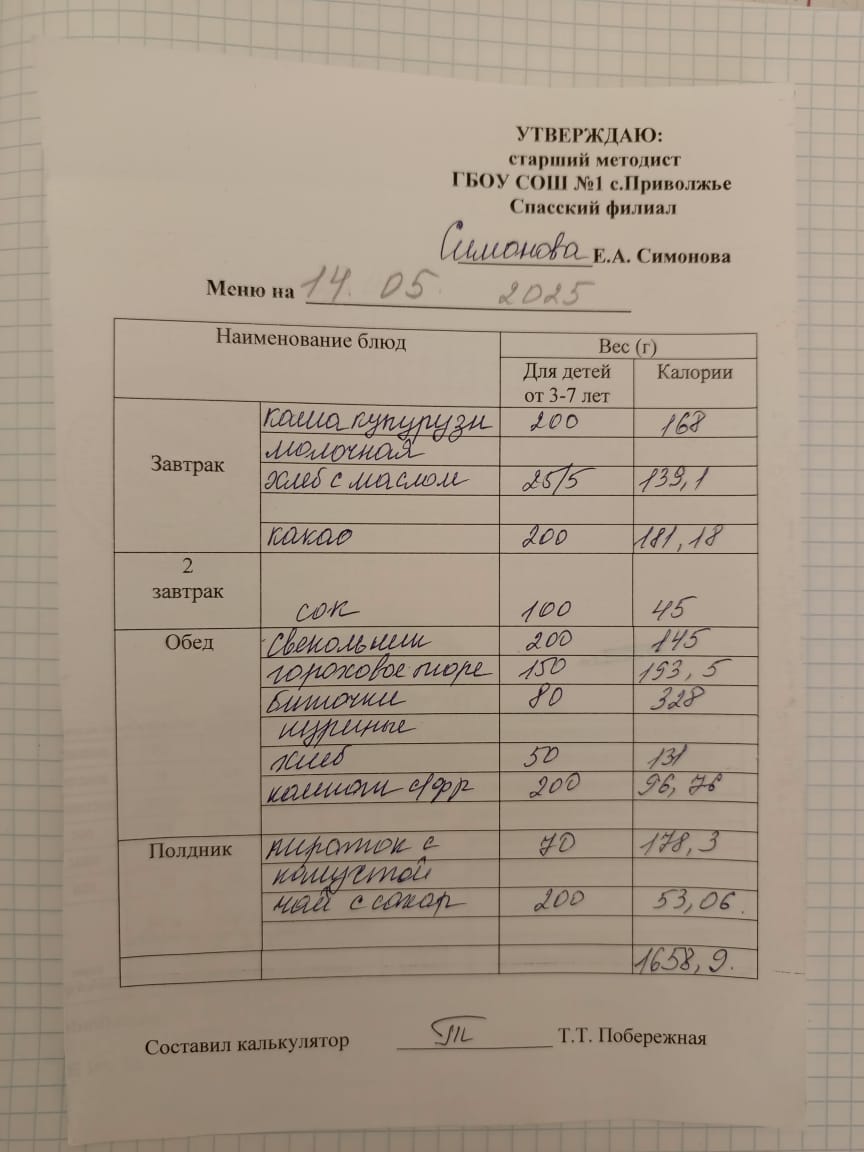 УТВЕРЖДАЮ:
старший методист
ГБОУ СОШ №1 с.Приволжье
Спасский филиал
Симонова Е.А. Симонова
Меню на 14. 05. 2025
Наименование блюд Вес (г)
Для детей от 3-7 лет Калории
Завтрак каша кукурузн 200 168
молочная
хлеб с маслом 25/5 139,1
какао 200 181,18
2 завтрак
сок 100 45
Обед свекольник 200 145
гороховое пюре 150 193,5
биточки 80 328
куриные
хлеб 50 131
компот с/фр 200 96,76
Полдник пирожок с 70 178,3
капустой
чай с сахар 200 53,06.
1658,9.
Составил калькулятор Т.Т. Побережная